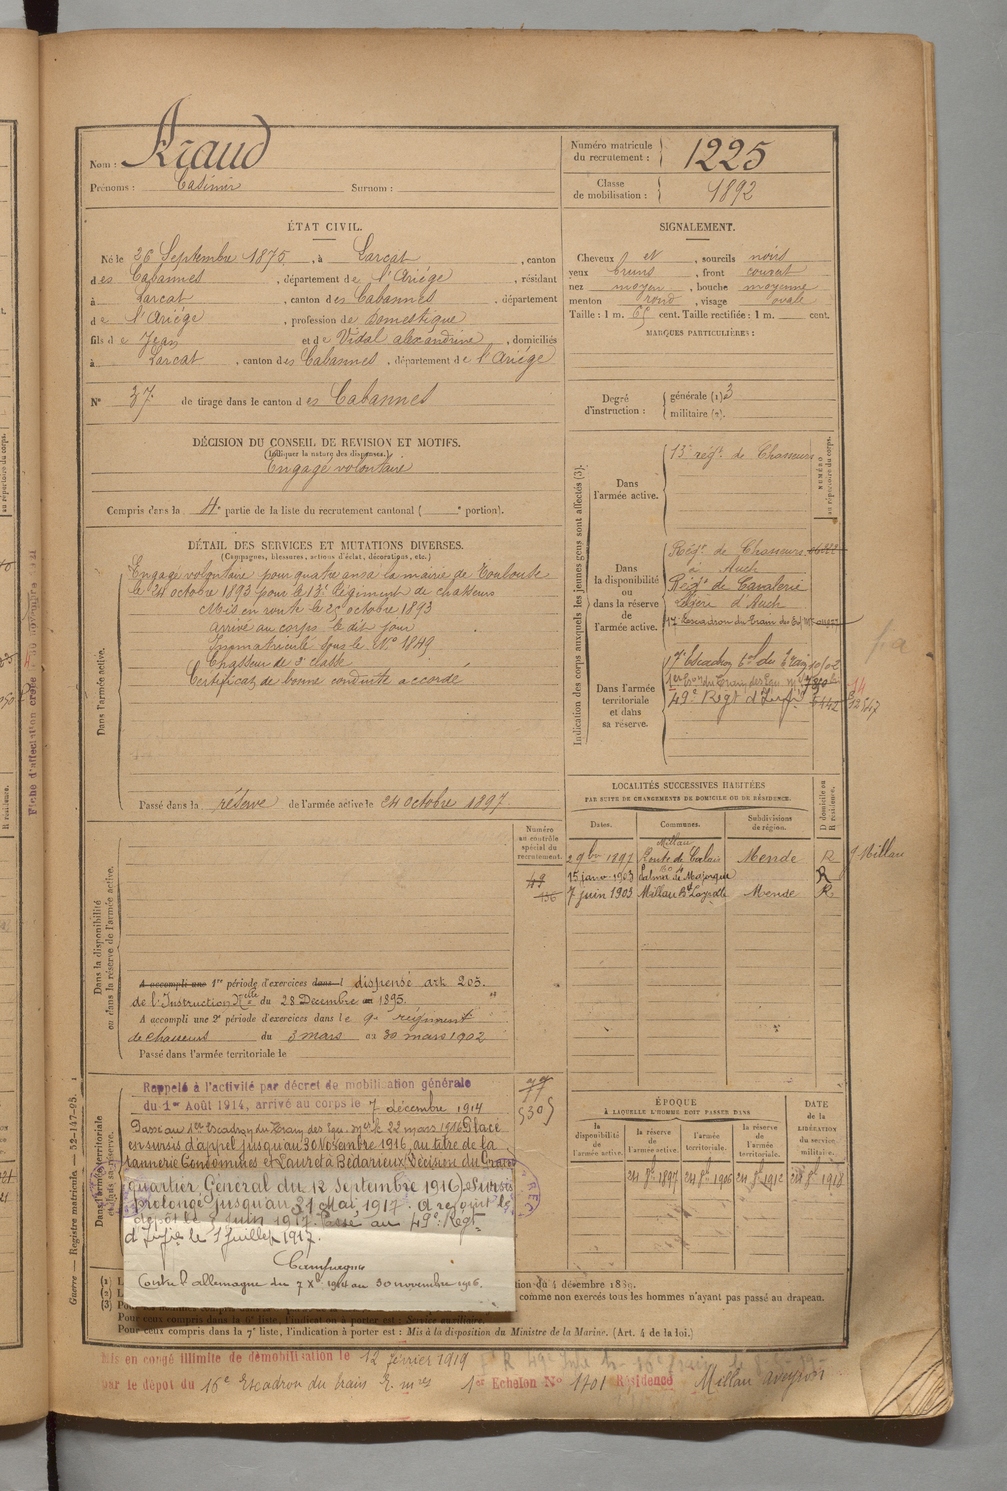 Nom : Araud
Prénoms : Casimir Surnom :
Numéro matricule du recrutement : 1225
Classe de mobilisation : 1892
ÉTAT CIVIL.
Né le 26 Septembre 1875, à Larcat, canton
des Cabannes, département de l'Ariége, résidant
à Larcat, canton des Cabannes, département
de l'Ariége, profession de domestique
fils de Jean et de Vidal alexandrine, domiciliés
à Larcat, canton des Cabannes, département de l'Ariége
N° 37 de tirage dans le canton des Cabannes
SIGNALEMENT.
Cheveux et, sourcils noirs
yeux bruns, front couvert
nez moyen, bouche moyenne
menton rond, visage ovale
Taille : 1 m. 65 cent. Taille rectifiée : 1 m. cent.
MARQUES PARTICULIÈRES :
Degré d'instruction : générale (1) 3
militaire (2).
DÉCISION DU CONSEIL DE REVISION ET MOTIFS.
(Indiquer la nature des dispenses.)
Engagé volontaire
Compris dans la 4e partie de la liste du recrutement cantonal ( e portion).
DÉTAIL DES SERVICES ET MUTATIONS DIVERSES.
(Campagnes, blessures, actions d'éclat, décorations, etc.)
Dans l'armée active.
Engagé volontaire pour quatre ans à la mairie de Toulouse
le 24 octobre 1893 pour le 13e régiment de chasseurs
Mis en route le 25 octobre 1893
Arrivé au corps le dit jour
Immatriculé sous le N° 1849
Chasseur de 2e classe
Certificat de bonne conduite accordé
Passé dans la réserve de l'armée active le 24 octobre 1897.
Indication des corps auxquels les jeunes gens sont affectés (3).
NUMÉRO au répertoire du corps.
Dans l'armée active.
13e régt. de Chasseurs
Dans la disponibilité ou dans la réserve de l'armée active.
Régt. de Chasseurs
à Auch
Régt de Cavalerie
Légère d'Auch
17e Escadron du Train des Eq. Mres
Dans l'armée territoriale et dans sa réserve.
17e Escadron tal du Train
1er Eson du Train des Equ. mres
49e Regt d'Infie
LOCALITÉS SUCCESSIVES HABITÉES
PAR SUITE DE CHANGEMENTS DE DOMICILE OU DE RÉSIDENCE.
Dates. Communes. Subdivisions de région. D domicile ou R résidence.
Millau
2 9bre 1897 Route de Calais Mende R
15 janv 1903 Palma de Majorque R
7 juin 1903 Millau Mende R
Millau
Numéro au contrôle spécial du recrutement.
49
136
Dans la disponibilité ou dans la réserve de l'armée active.
A accompli une 1re période d'exercices dans l dispensé art. 205.
de l'Instruction Nelle du 28 Décembre au 1895. "
A accompli une 2e période d'exercices dans le 9e régiment
de chasseurs du 3 mars au 30 mars 1902
Passé dans l'armée territoriale le
Dans l'armée territoriale et dans sa réserve.
Rappelé à l'activité par décret de mobilisation générale
du 1er Août 1914, arrivé au corps le 7 décembre 1914
Passé au 1er Escadron du Train des Equ. mres le 22 mars 1916 Placé
en sursis d'appel jusqu'au 30 Novembre 1916, au titre de la
tannerie Condomines et Lauret à Bédarieux Décision du Grand
Quartier Général du 12 Septembre 1916). Sursis
prolongé jusqu'au 31 Mai 1917. A rejoint le
dépôt le Juin 1917. Passé au 49e Regt
d'Infie le 1 Juillet 1917.
Campagnes
Contre l'allemagne du 7 Xbre 1914 au 30 novembre 1916.
ÉPOQUE
À LAQUELLE L'HOMME DOIT PASSER DANS
la disponibilité de l'armée active. la réserve de l'armée active. l'armée territoriale. la réserve de l'armée territoriale.
DATE de la LIBÉRATION du service militaire.
24 8bre 1897 24 8bre 1906 24 8bre 1912 24 8bre 1918
du 4 décembre 1889.
comme non exercés tous les hommes n'ayant pas passé au drapeau.
Pour ceux compris dans la 6e liste, l'indication à porter est : Service auxiliaire.
Pour ceux compris dans la 7e liste, l'indication à porter est : Mis à la disposition du Ministre de la Marine. (Art. 4 de la loi.)
Mis en congé illimité de démobilisation le 12 février 1919
par le dépôt du 16e Escadron du train E. mres 1er Echelon N° 1701 Résidence Millau Aveyron